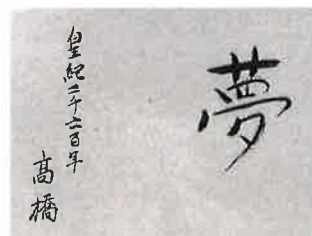 夢
皇紀二千六百年
高橋